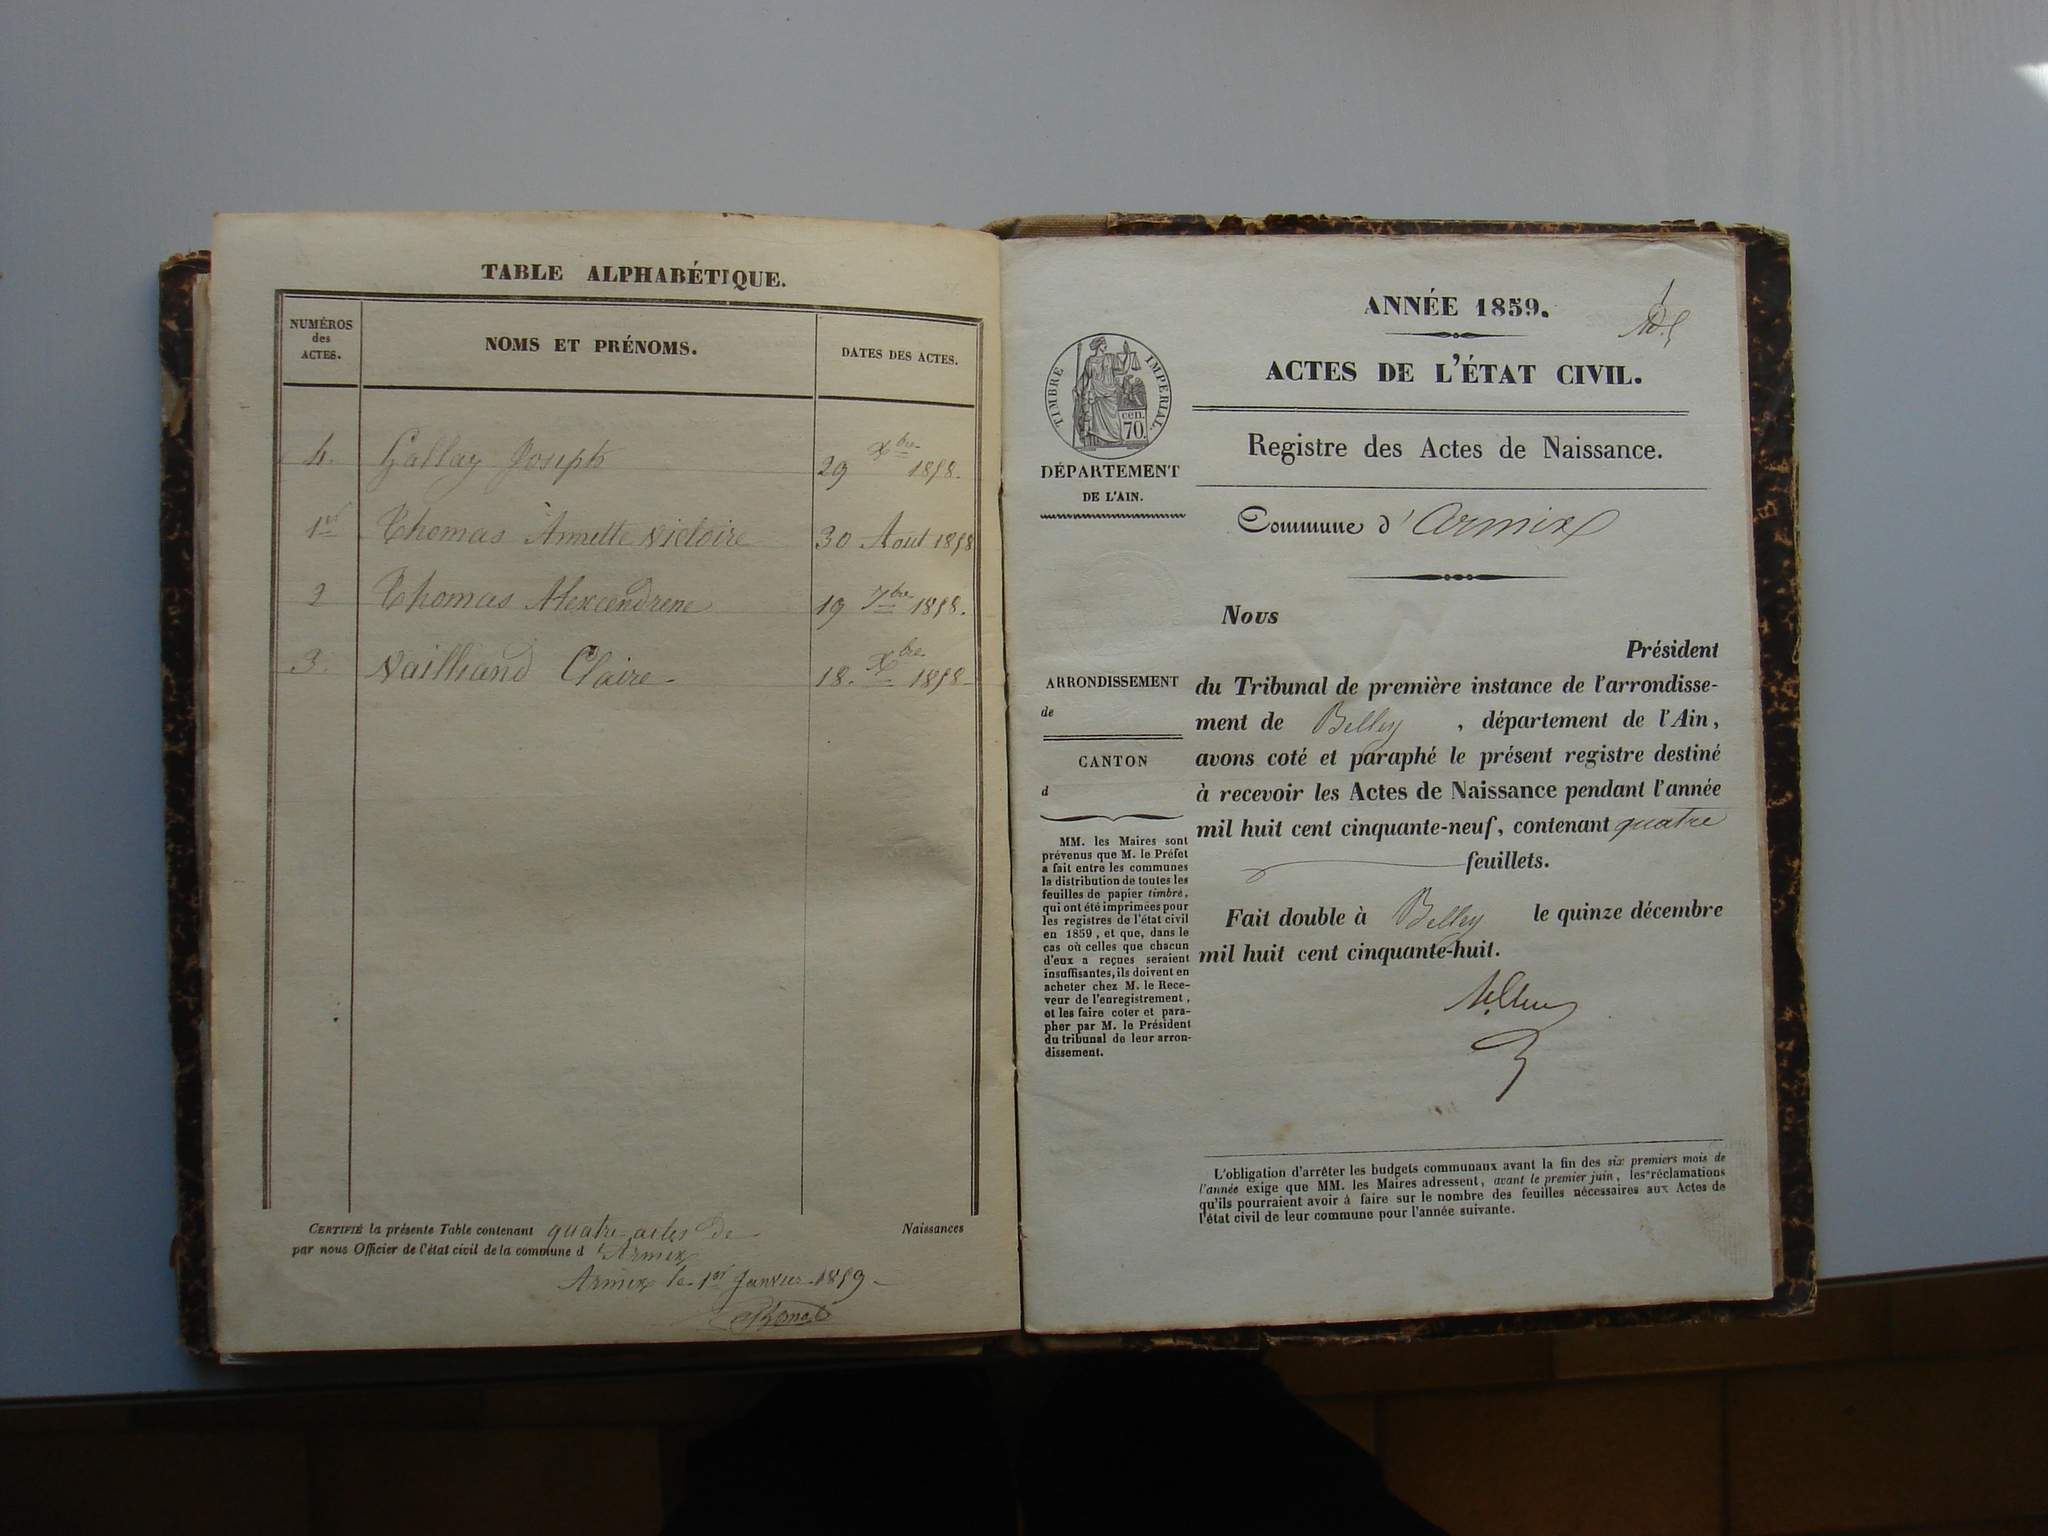 TABLE ALPHABÉTIQUE.
NUMÉROS des ACTES.
NOMS ET PRÉNOMS.
DATES DES ACTES.
4. Gallay Joseph 29 Xbre 1858.
1er Thomas Annette Victoire 30 Août 1858
2 Thomas Alexandrene 19 7bre 1858.
3. Vailliand Claire 18. Xbre 1858
CERTIFIÉ la présente Table contenant quatre actes de Naissances
par nous Officier de l'état civil de la commune d'Armix
Armix le 1er Janvier 1859
ANNÉE 1859.
ACTES DE L'ÉTAT CIVIL.
TIMBRE IMPERIAL.
cen.
70.
DÉPARTEMENT
DE L'AIN.
Registre des Actes de Naissance.
Commune d'Armix
Nous
Président
du Tribunal de première instance de l'arrondisse-
ment de Belley, département de l'Ain,
avons coté et paraphé le présent registre destiné
à recevoir les Actes de Naissance pendant l'année
mil huit cent cinquante-neuf, contenant quatre
feuillets.
Fait double à Belley le quinze décembre
mil huit cent cinquante-huit.
ARRONDISSEMENT
de
CANTON
d
MM. les Maires sont
prévenus que M. le Préfet
a fait entre les communes
la distribution de toutes les
feuilles de papier timbré,
qui ont été imprimées pour
les registres de l'état civil
en 1859, et que, dans le
cas où celles que chacun
d'eux a reçues seraient
insuffisantes, ils doivent en
acheter chez M. le Rece-
veur de l'enregistrement,
et les faire coter et para-
pher par M. le Président
du tribunal de leur arron-
dissement.
L'obligation d'arrêter les budgets communaux avant la fin des six premiers mois de
l'année exige que MM. les Maires adressent, avant le premier juin, les réclamations
qu'ils pourraient avoir à faire sur le nombre des feuilles nécessaires aux Actes de
l'état civil de leur commune pour l'année suivante.